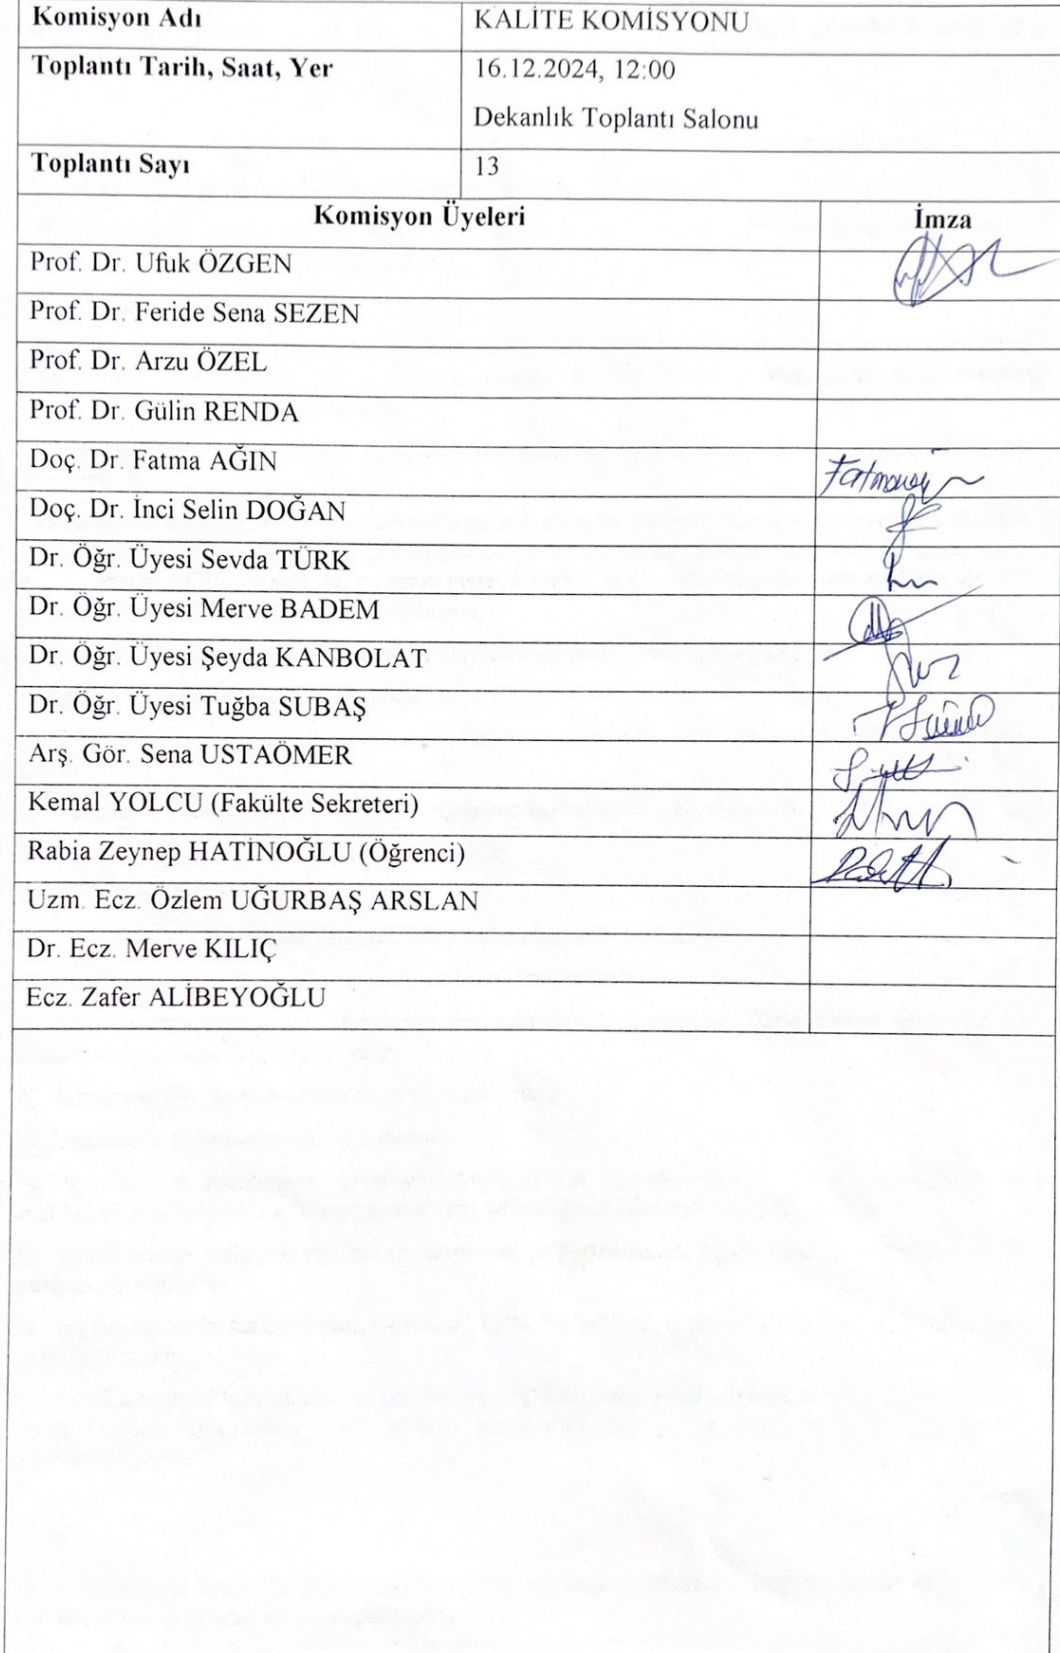 Komisyon Adı KALİTE KOMİSYONU
Toplantı Tarih, Saat, Yer 16.12.2024, 12:00
Dekanlık Toplantı Salonu
Toplantı Sayı 13
Komisyon Üyeleri İmza
Prof. Dr. Ufuk ÖZGEN
Prof. Dr. Feride Sena SEZEN
Prof. Dr. Arzu ÖZEL
Prof. Dr. Gülin RENDA
Doç. Dr. Fatma AĞIN
Doç. Dr. İnci Selin DOĞAN
Dr. Öğr. Üyesi Sevda TÜRK
Dr. Öğr. Üyesi Merve BADEM
Dr. Öğr. Üyesi Şeyda KANBOLAT
Dr. Öğr. Üyesi Tuğba SUBAŞ
Arş. Gör. Sena USTAÖMER
Kemal YOLCU (Fakülte Sekreteri)
Rabia Zeynep HATİNOĞLU (Öğrenci)
Uzm. Ecz. Özlem UĞURBAŞ ARSLAN
Dr. Ecz. Merve KILIÇ
Ecz. Zafer ALİBEYOĞLU